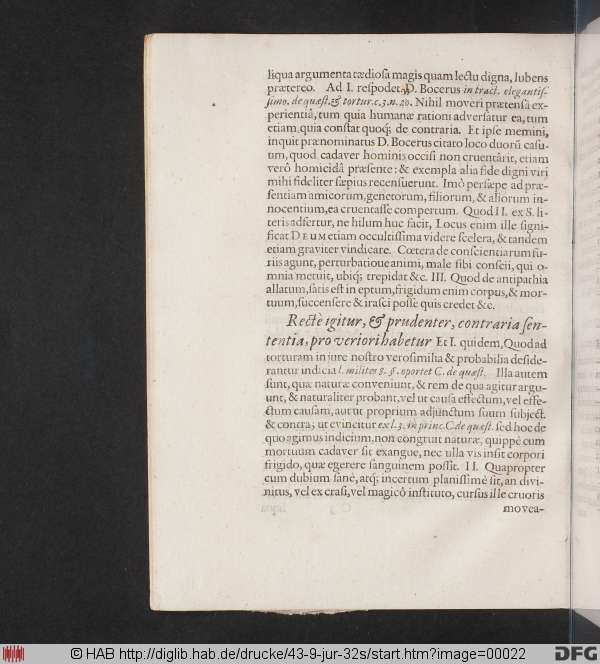 liqua argumenta tædiosa magis quam lectu digna, lubens
prætereo. Ad I. respõdet D. Bocerus in tract. elegantis-
simo. de quæst. & tortur. c. 3. n. 20. Nihil moveri prætensâ ex-
perientiâ, tum quia humanæ rationi adversatur ea, tum
etiam quia constat quoq; de contraria. Et ipse memini,
inquit prænominatus D. Bocerus citato loco duorũ casu-
um, quod cadaver hominis occisi non cruentârit, etiam
verô homicidâ præsente: & exempla alia fide digni viri
mihi fideliter sæpius recensuerunt. Imò persæpe ad præ-
sentiam amicorum, genetorum, filiorum, & aliorum in-
nocentium, ea cruentasse compertum. Quod II. ex S. li-
teris adfertur, ne hilum huc facit, Locus enim ille signi-
ficat DEUM etiam occultissima videre scelera, & tandem
etiam graviter vindicare. Cœtera de conscientiarum fu-
riis agunt, perturbatioue animi, male sibi conscii, qui o-
mnia metuit, ubiq; trepidat &c. III. Quod de antipathia
allatum, satis est in eptum, frigidum enim corpus, & mor-
tuum, succensere & irasci posse quis credet &c.
Rectè igitur, & prudenter, contraria sen-
tentia, pro veriori habetur Et I. quidem, Quod ad
torturam in jure nostro verosimilia & probabilia deside-
rantur indicia l. milites 8. §. oportet C. de quæst. Illa autem
sunt, quæ naturæ conveniunt, & rem de qua agitur argu-
unt, & naturaliter probant, vel ut causa effectum, vel effe-
ctum causam, aut ut proprium adjunctum suum subject.
& contra; ut evincitur ex l. 3. in princ. C. de quæst. sed hoc de
quo agimus indicium, non congruit naturæ, quippè cum
mortuum cadaver sit exangue, nec ulla vis insit corpori
frigido, quæ egerere sanguinem possit. II. Quapropter
cum dubium sanè, atq; incertum planissimè sit, an divi-
nitus, vel ex crasi, vel magicô instituto, cursus ille cruoris
movea-
© HAB http://diglib.hab.de/drucke/43-9-jur-32s/start.htm?image=00022
DFG